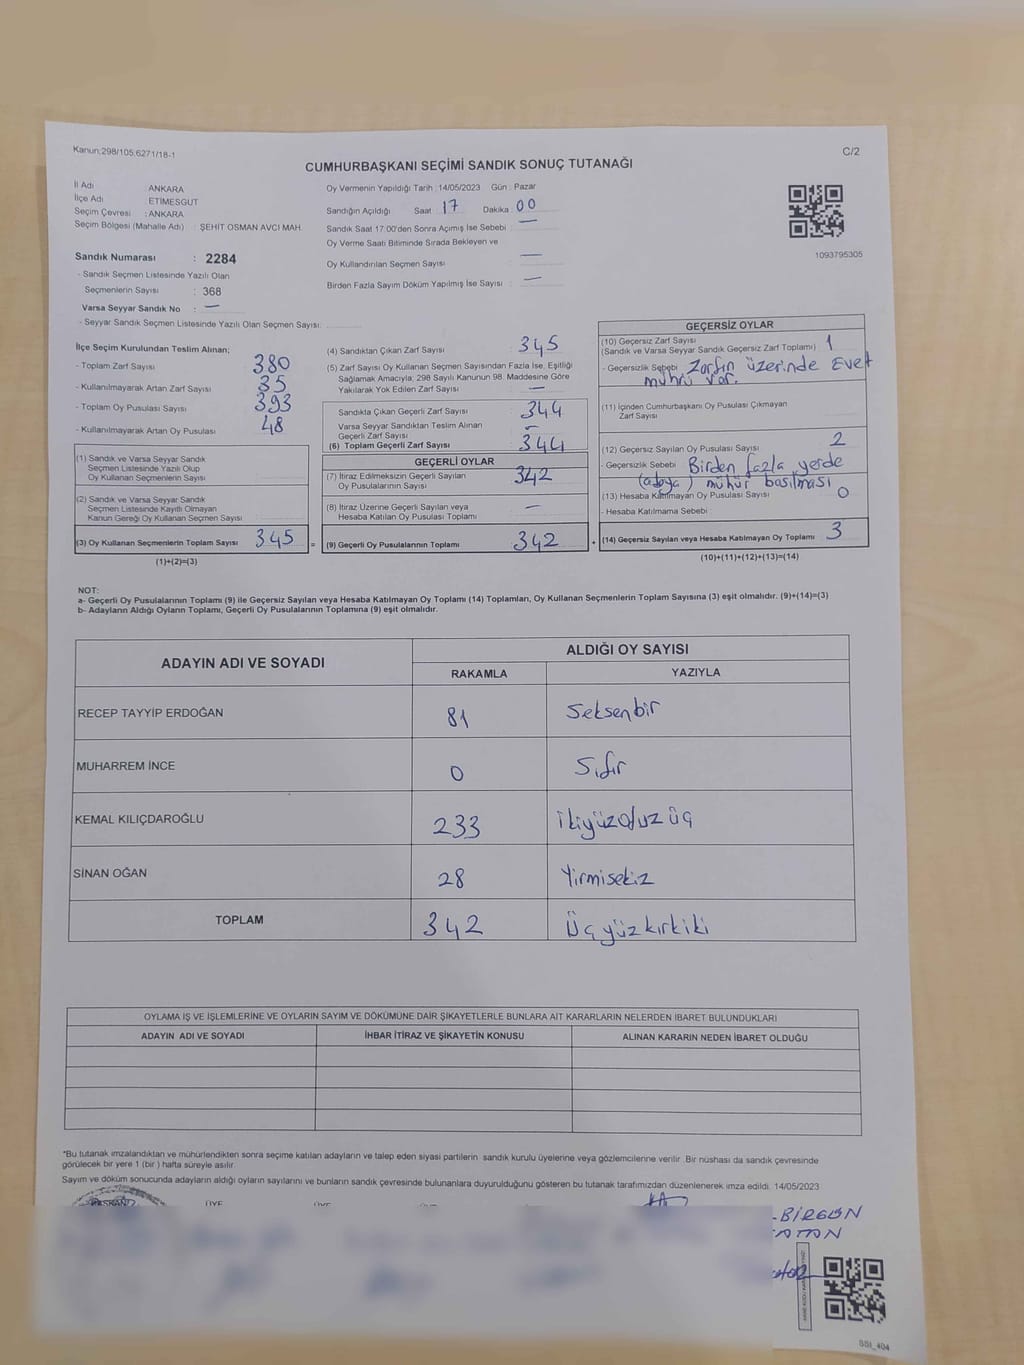 Kanun:298/105.6271/18-1
C/2
CUMHURBAŞKANI SEÇİMİ SANDIK SONUÇ TUTANAĞI
İl Adı : ANKARA
İlçe Adı : ETİMESGUT
Seçim Çevresi : ANKARA
Seçim Bölgesi (Mahalle Adı) : ŞEHİT OSMAN AVCI MAH.
Sandık Numarası : 2284
- Sandık Seçmen Listesinde Yazılı Olan
Seçmenlerin Sayısı : 368
Varsa Seyyar Sandık No : —
- Seyyar Sandık Seçmen Listesinde Yazılı Olan Seçmen Sayısı:
Oy Vermenin Yapıldığı Tarih : 14/05/2023 Gün : Pazar
Sandığın Açıldığı Saat : 17 Dakika : 00
Sandık Saat 17:00'den Sonra Açımış İse Sebebi : —
Oy Verme Saati Bitiminde Sırada Bekleyen ve
Oy Kullandırılan Seçmen Sayısı : —
Birden Fazla Sayım Döküm Yapılmış İse Sayısı : —
1093795305
İlçe Seçim Kurulundan Teslim Alınan;
- Toplam Zarf Sayısı 380
- Kullanılmayarak Artan Zarf Sayısı 35
- Toplam Oy Pusulası Sayısı 393
- Kullanılmayarak Artan Oy Pusulası 48
(1) Sandık ve Varsa Seyyar Sandık
Seçmen Listesinde Yazılı Olup
Oy Kullanan Seçmenlerin Sayısı
(2) Sandık ve Varsa Seyyar Sandık
Seçmen Listesinde Kayıtlı Olmayan
Kanun Gereği Oy Kullanan Seçmen Sayısı
(3) Oy Kullanan Seçmenlerin Toplam Sayısı 345
(1)+(2)=(3)
(4) Sandıktan Çıkan Zarf Sayısı 345
(5) Zarf Sayısı Oy Kullanan Seçmen Sayısından Fazla İse, Eşitliği
Sağlamak Amacıyla; 298 Sayılı Kanunun 98. Maddesine Göre
Yakılarak Yok Edilen Zarf Sayısı —
Sandıkta Çıkan Geçerli Zarf Sayısı 344
Varsa Seyyar Sandıktan Teslim Alınan
Geçerli Zarf Sayısı —
(6) Toplam Geçerli Zarf Sayısı 344
GEÇERLİ OYLAR
(7) İtiraz Edilmeksizin Geçerli Sayılan
Oy Pusulalarının Sayısı 342
(8) İtiraz Üzerine Geçerli Sayılan veya
Hesaba Katılan Oy Pusulası Toplamı —
= (9) Geçerli Oy Pusulalarının Toplamı 342 +
GEÇERSİZ OYLAR
(10) Geçersiz Zarf Sayısı
(Sandık ve Varsa Seyyar Sandık Geçersiz Zarf Toplamı) 1
- Geçersizlik Sebebi Zarfın üzerinde Evet
mührü var.
(11) İçinden Cumhurbaşkanı Oy Pusulası Çıkmayan
Zarf Sayısı
(12) Geçersiz Sayılan Oy Pusulası Sayısı 2
- Geçersizlik Sebebi Birden fazla yerde
(adaya) mühür basılması
(13) Hesaba Katılmayan Oy Pusulası Sayısı 0
- Hesaba Katılmama Sebebi :
(14) Geçersiz Sayılan veya Hesaba Katılmayan Oy Toplamı 3
(10)+(11)+(12)+(13)=(14)
NOT:
a- Geçerli Oy Pusulalarının Toplamı (9) ile Geçersiz Sayılan veya Hesaba Katılmayan Oy Toplamı (14) Toplamları, Oy Kullanan Seçmenlerin Toplam Sayısına (3) eşit olmalıdır. (9)+(14)=(3)
b- Adayların Aldığı Oyların Toplamı, Geçerli Oy Pusulalarının Toplamına (9) eşit olmalıdır.
ADAYIN ADI VE SOYADI
ALDIĞI OY SAYISI
RAKAMLA YAZIYLA
RECEP TAYYİP ERDOĞAN 81 Seksenbir
MUHARREM İNCE 0 Sıfır
KEMAL KILIÇDAROĞLU 233 İkiyüzotuzüç
SİNAN OĞAN 28 Yirmisekiz
TOPLAM 342 Üçyüzkırkiki
OYLAMA İŞ VE İŞLEMLERİNE VE OYLARIN SAYIM VE DÖKÜMÜNE DAİR ŞİKAYETLERLE BUNLARA AİT KARARLARIN NELERDEN İBARET BULUNDUKLARI
ADAYIN ADI VE SOYADI İHBAR İTİRAZ VE ŞİKAYETİN KONUSU ALINAN KARARIN NEDEN İBARET OLDUĞU
*Bu tutanak imzalandıktan ve mühürlendikten sonra seçime katılan adayların ve talep eden siyasi partilerin sandık kurulu üyelerine veya gözlemcilerine verilir. Bir nüshası da sandık çevresinde
görülecek bir yere 1 (bir) hafta süreyle asılır.
Sayım ve döküm sonucunda adayların aldığı oyların sayılarını ve bunların sandık çevresinde bulunanlara duyurulduğunu gösteren bu tutanak tarafımızdan düzenlenerek imza edildi. 14/05/2023
ÜYE ÜYE
BİRGÜN
SSI_404